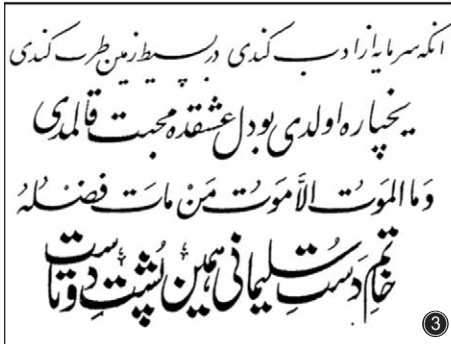 انکه سرمایه از ادب کندی در بسیط زمین طرب کندی
یخپاره اولدی بو دل عشقده محبت قالمدی
وَمَا المَوتُ اِلاَّ مَوتُ مَنْ مَاتَ فَضْلُهُ
خاتمِ دَستِ سُلیمانی همین پُشتِ دوتاست
3